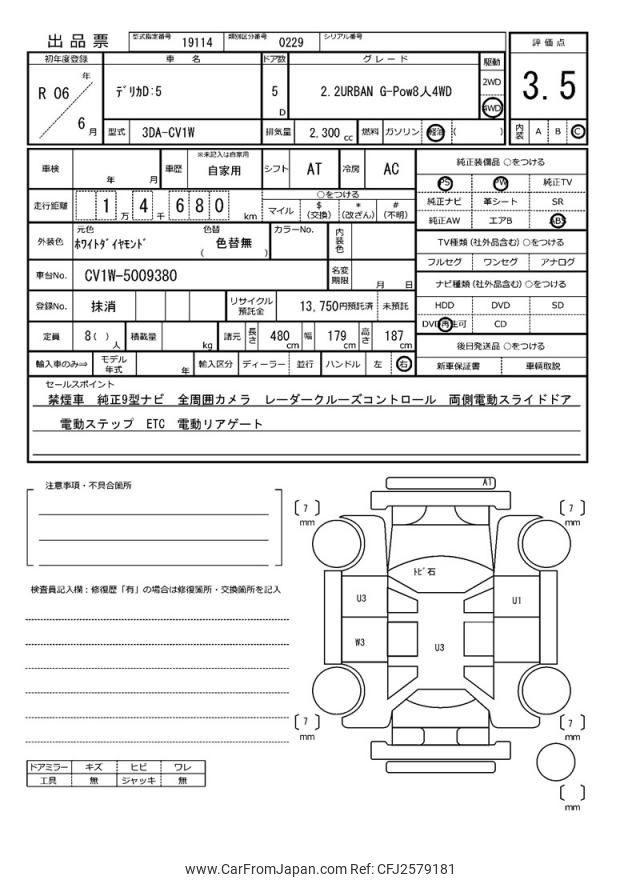 出品票 型式指定番号 19114 類別区分番号 0229 シリアル番号
評価点
3.5
内装 A B C
初年度登録 車名 ドア数 グレード 駆動
R 06 年 6 月
デリカD:5 5 D 2.2URBAN G-Pow8人4WD 2WD 4WD
型式 3DA-CV1W 排気量 2,300 cc 燃料 ガソリン 軽油 ( )
車検 年 月 車歴 ※未記入は自家用 自家用 シフト AT 冷房 AC
走行距離 1 万 4 千 6 8 0 km
○をつける
マイル $(交換) *(改ざん) #(不明)
外装色 元色 ホワイトダイヤモンド 色替 ( 色替無 ) カラーNo. 内装色
車台No. CV1W-5009380 名変期限 月 日
登録No. 抹消 リサイクル預託金 13,750円預託済 未預託
定員 8( )人 積載量 kg 諸元 長さ 480 cm 幅 179 cm 高さ 187 cm
輸入車のみ⇨ モデル年式 年 輸入区分 ディーラー 並行 ハンドル 左 右
純正装備品 ○をつける
PS PW 純正TV
純正ナビ 革シート SR
純正AW エアB ABS
TV種類(社外品含む)○をつける
フルセグ ワンセグ アナログ
ナビ種類(社外品含む)○をつける
HDD DVD SD
DVD再生可 CD
後日発送品 ○をつける
新車保証書 車輌取説
セールスポイント
禁煙車 純正9型ナビ 全周囲カメラ レーダークルーズコントロール 両側電動スライドドア
電動ステップ ETC 電動リアゲート
注意事項・不具合箇所
検査員記入欄:修復歴「有」の場合は修復箇所・交換箇所を記入
ドアミラー キズ ヒビ ワレ
工具 無 ジャッキ 無
A1
[ 7 ] mm
[ 7 ] mm
トビ石
U3
U1
W3
U3
[ 7 ] mm
[ 7 ] mm
[ ] mm
www.CarFromJapan.com Ref: CFJ2579181